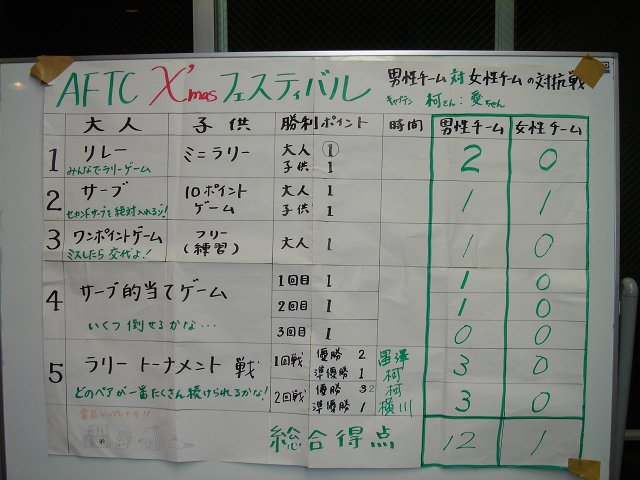 AFTC X'mas フェスティバル
男性チーム 対 女性チームの対抗戦
キャプテン 柯さん:愛ちゃん
大人 子供 勝利ポイント 時間 男性チーム 女性チーム
1 リレー ミニラリー 大人 ① 2 0
みんなでラリーゲーム 子供 1
2 サーブ 10ポイント 大人 1 1 1
セカンドサーブを絶対入れるゾ! ゲーム 子供 1
3 ワンポイントゲーム フリー 大人 1 1 0
ミスしたら交代よ! (練習)
4 サーブ的当てゲーム 1回目 1 1 0
2回目 1 1 0
いくつ倒せるかな… 3回目 1 0 0
5 ラリートーナメント戦 1回戦 優勝 2 3 0
準優勝 1 柯
どのペアが一番たくさん続けられるかな! 2回戦 優勝 3 2 柯 3 0
準優勝 1 横川
総合得点 12 1